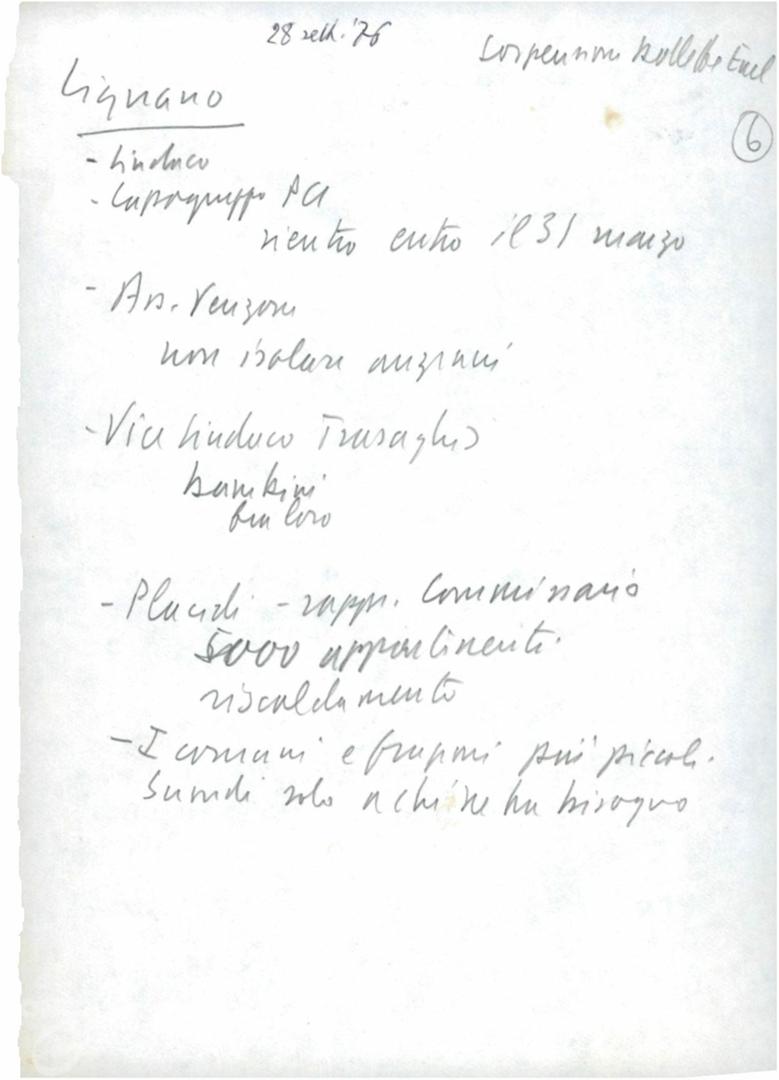 28 sett. '76
Sospensione bollette Enel
6
Lignano
- Sindaco
- Capogruppo PCI
rientro entro il 31 marzo
- Ass. Venzone
non isolare anziani
- Vice Sindaco Trasaghis
bambini
fra loro
- Placidi - rappr. Commissario
5000 appartamenti
riscaldamento
- I comuni e frazioni più piccoli.
Sussidi solo a chi ne ha bisogno